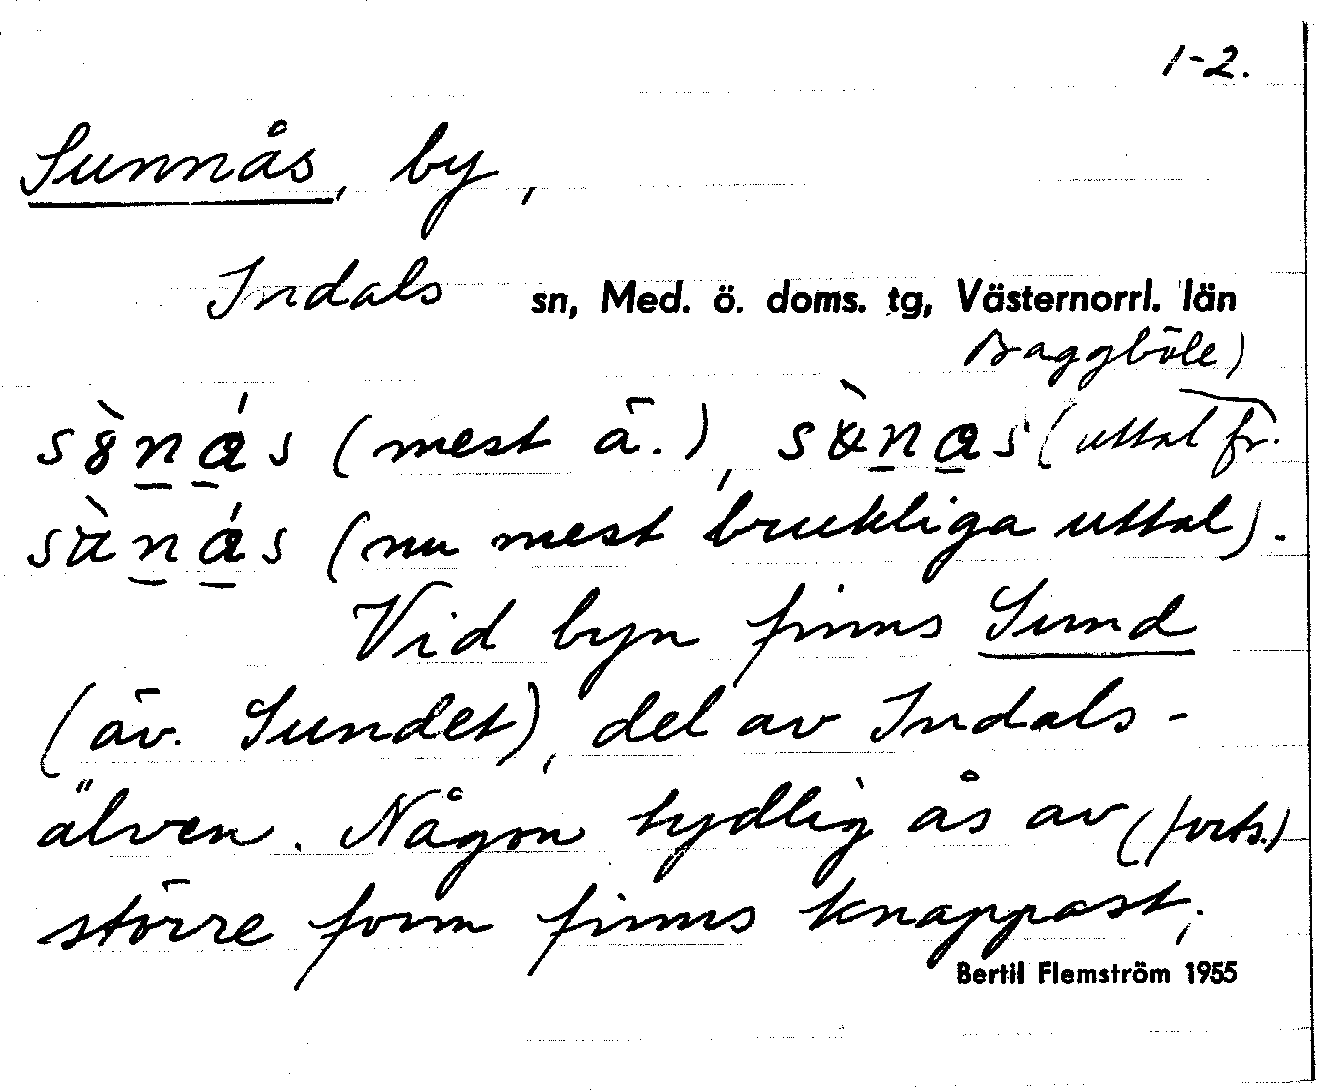 1-2.
Sunnås, by,
Indals sn, Med. ö. doms. tg, Västernorrl. län
Baggböle)
(mest ä.), (uttal fr.
(nu mest brukliga uttal).
Vid byn finns Sund
(äv. Sundet), del av Indals-
älven. Någon tydlig ås av (forts.)
större form finns knappast,
Bertil Flemström 1955